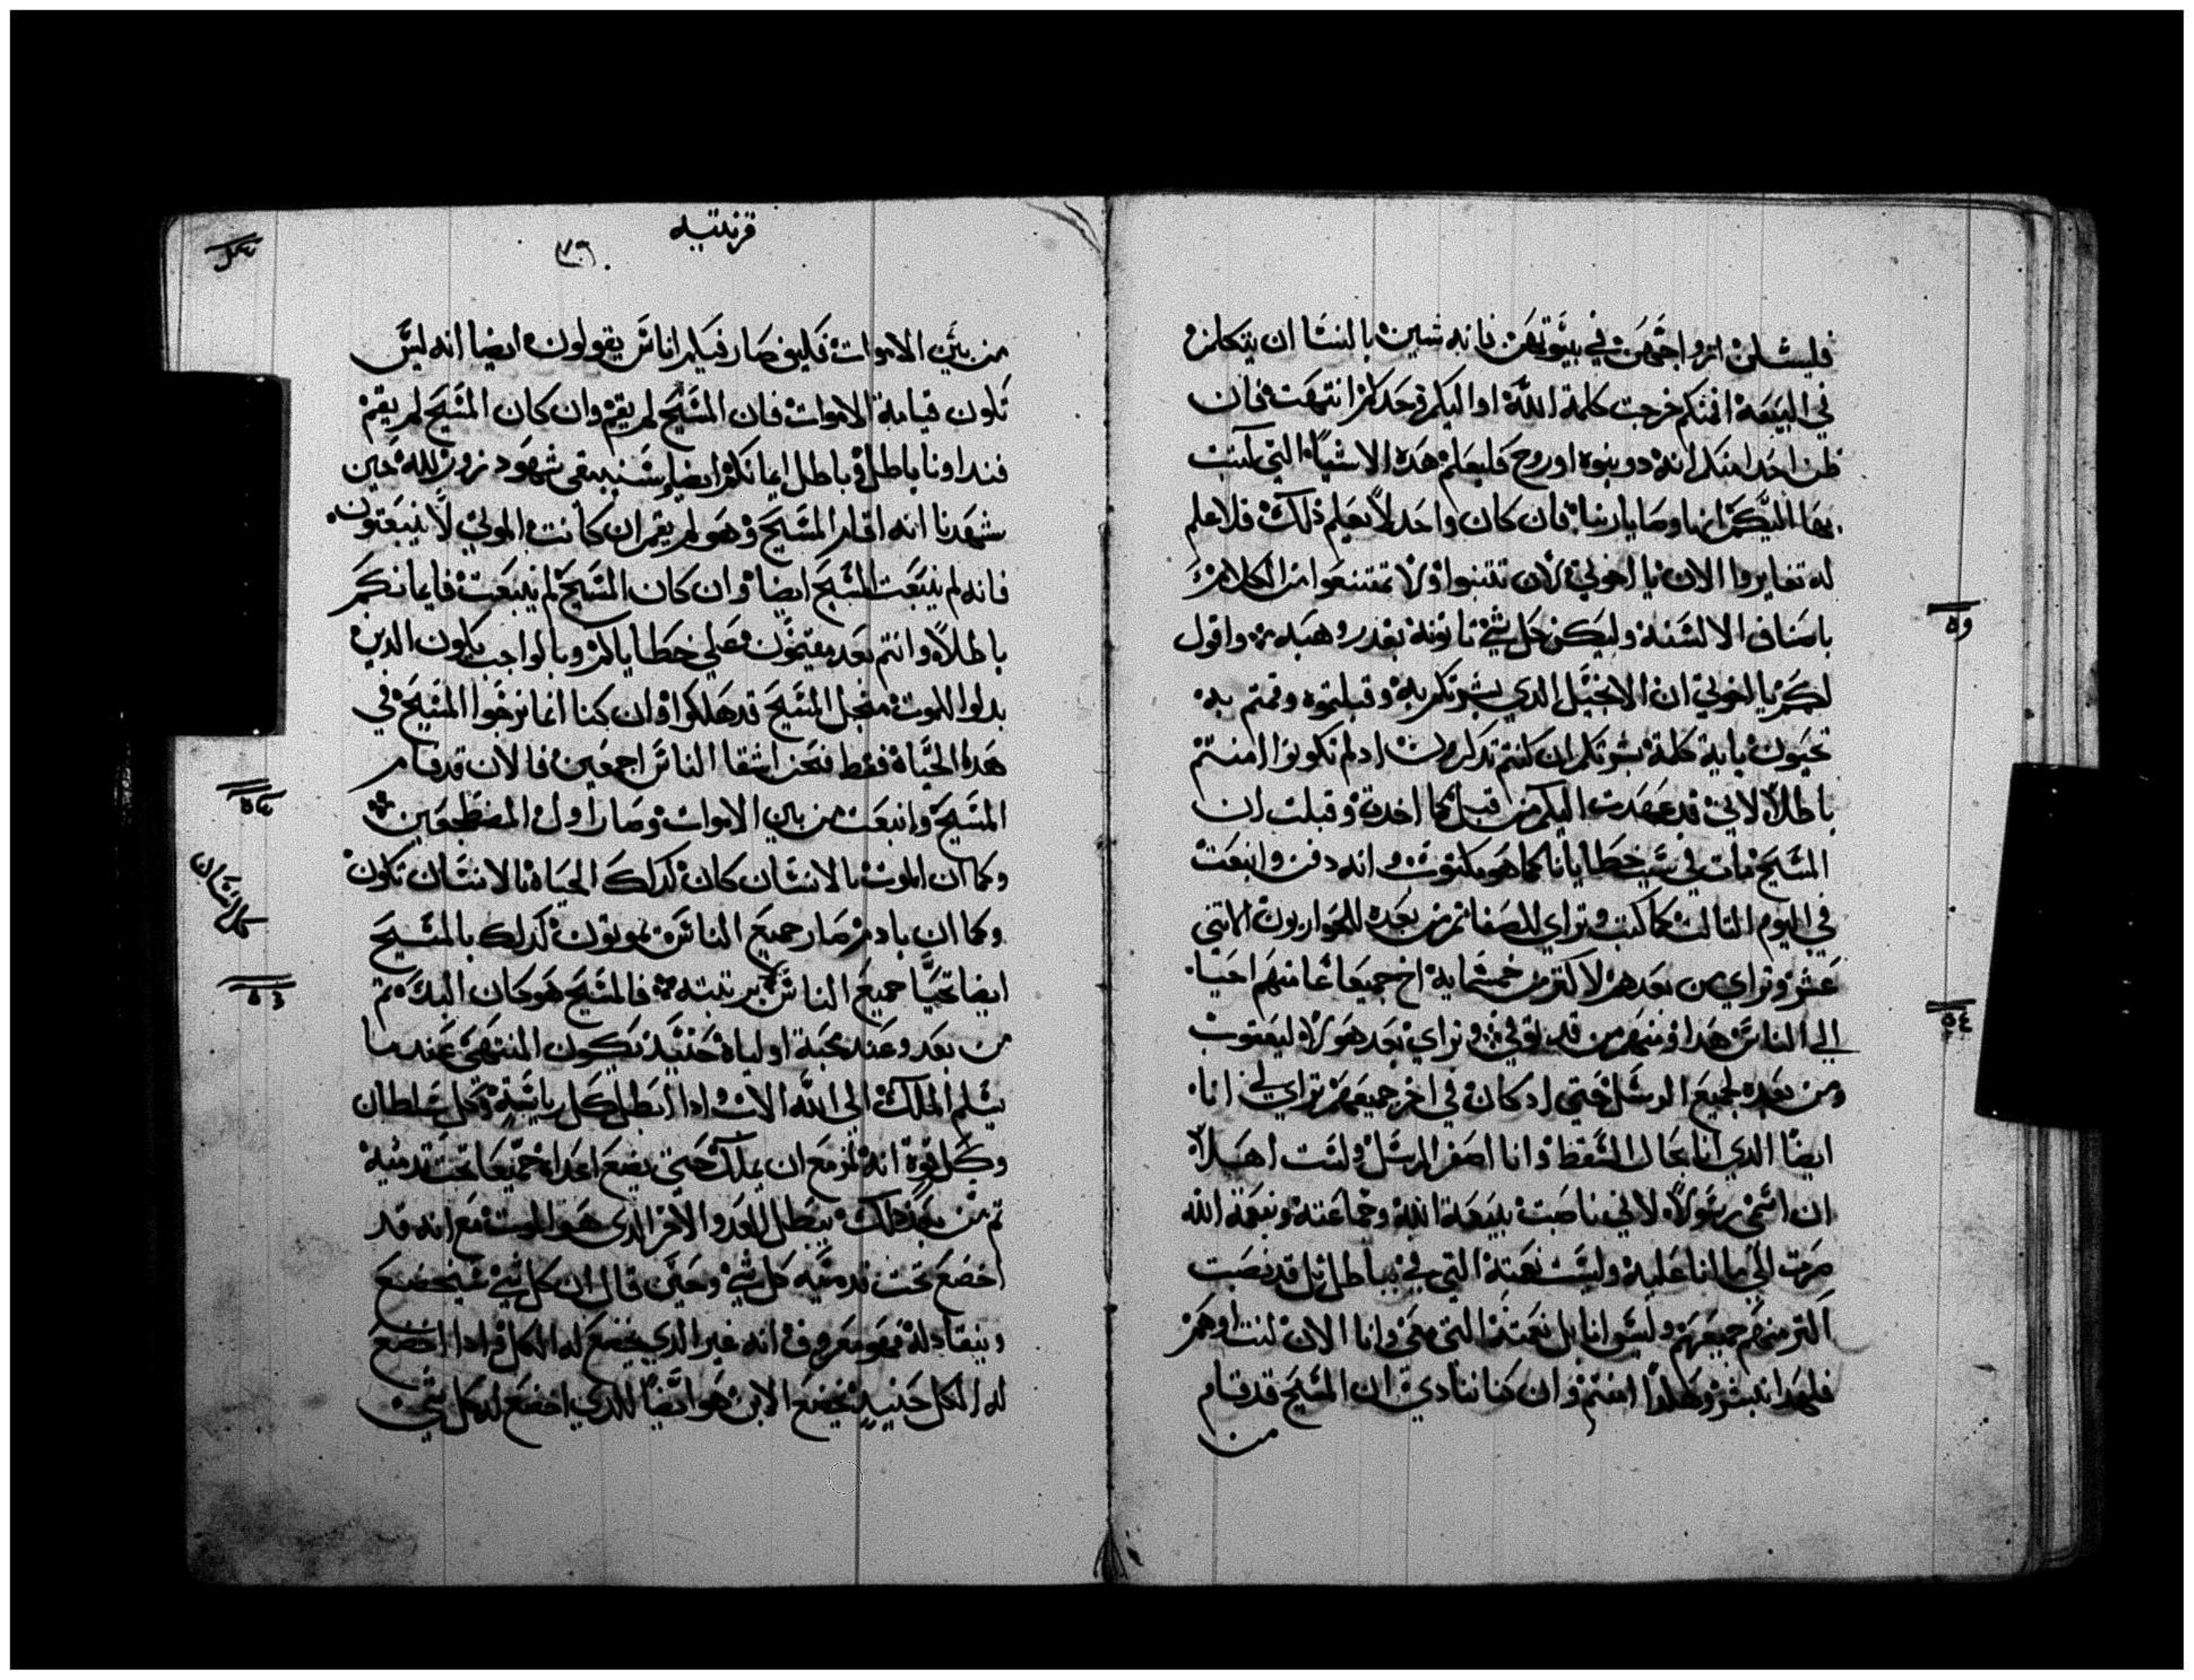 فليسلن ازواجهن في بيوتهن فانه شين بالنسا ان يتكلمن
في البيعة امنكم خرجت كلمة الله او اليكم وحدكم انتهت فان
ظن احد منكم انه دو نبوه او روح فليعلم هده الاشيا التي كتبت
بها اليكم انها وصايا ربنا فان كان واحد لا يعلم ذلك فلا علم
له تغايروا الان يا اخوتي لان تتنبوا ولا تمتنعوا من الكلام
باصناف الالسنة وليكن كل شي تاتونه بقدر وهبه واقول
لكم يا اخوتي ان الانجيل الدي بشرتكم به وقبلتموه وقمتم به
تحيون باية كلمة بشرتكم ان كنتم تدكرون اد لم تكونوا امنتم
باطلا لاني قد عهدت اليكم من قبل كما اخدت وقبلت ان
المسيح مات في سبب خطايانا كما هو مكتوب وانه دفن وانبعت
في اليوم التالت كما كتب وتراي للصفا تم من بعده للحواريون الاتني
عشر وتراي من بعدهم لاكتر من خمسماية اخ جميعا عامتهم احيا
الي الناس هدا ومنهم من قد توفي وتراي بعد هولاء ليعقوب
ومن بعده لجميع الرسل حتي اد كان في اخر جميعهم تراي لي انا
ايضا الدي انا بحال السقط وانا اصغر الرسل ولست اهلا
ان اسمى رسولا لاني ناصبت بيعة الله وجماعته وبنعمة الله
صرت الي ما انا عليه وليست نعمته التي في بباطل بل قد نصبت
اكتر منهم جميعهم وليس انا بل نعمته التي معي وانا الان كنت او هم
فلهدا نبشر وهكدا امنتم وان كنا ننادي ان المسيح قد قام
من
٥٥
٥٤
قرنتيه
٧٦
من بين الاموات فكيف صار فيكم اناس يقولون ايضا انه ليس
تكون قيامة الاموات فان المسيح لم يقم وان كان المسيح لم يقم
فنداونا باطل وباطل ايمانكم ايضا شهود زور لله حين
شهدنا انه اقام المسيح وهو لم يقم ان كانت الموتي لا ينبعتون
فانه لم ينبعت المسيح ايضا وان كان المسيح لم ينبعت فايمانكم
باطلا وانتم بعد مقيمون علي خطاياكم وبالواجب يكون الدين
بدلوا للموت من اجل المسيح قد هلكوا وان كنا انما نرجوا المسيح في
هده الحياة فقط فنحن اشقا الناس اجمعين فالان قد قام
المسيح وانبعت من بين الاموات وصار اول المضطجعين
وكما ان الموت بالانسان كان كدلك الحياة بالانسان تكون
وكما ان بادم صار جميع الناس يموتون كدلك بالمسيح
ايضا تحيا جميع الناس برتبته فالمسيح هو كان البكر تم
من بعد وعند مجية اولياه حنيد يكون المنتهى عندما
يسلم الملك الى الله الاب وادا ابطل كل رياسة وكل سلطان
وكل قوة انه لمزمع ان يملك حتي يضع اعداه جميعا تحت قدميه
تم من بعد دلك يبطل العدو الاخر الدي هو الموت مع انه قد
اخضع تحت قدميه كل شي وحين قال ان كل شي سيخضع
وينقاد له فهو معروف انه غير الدي يخضع له الكل وادا اخضع
له الكل حنيد يخضع الابن هو ايضا للدي اخضع له كل شي
٥٤
٥٣